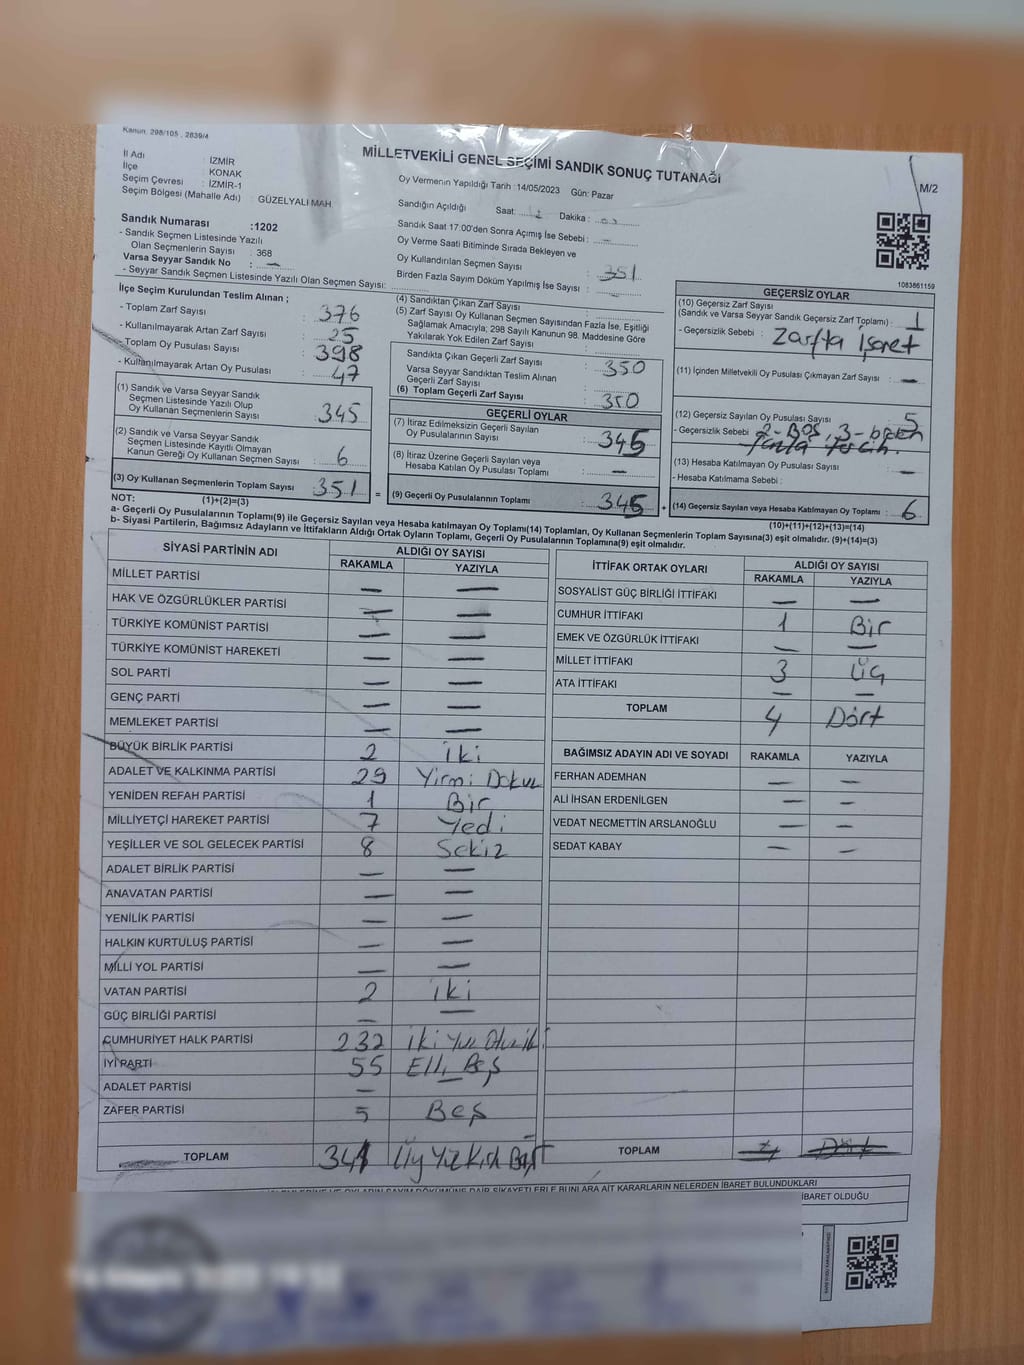 Kanun, 298/105 , 2839/4
MİLLETVEKİLİ GENEL SEÇİMİ SANDIK SONUÇ TUTANAĞI
M/2
İl Adı : İZMİR
İlçe : KONAK
Seçim Çevresi : İZMİR-1
Seçim Bölgesi (Mahalle Adı) GÜZELYALI MAH.
Oy Vermenin Yapıldığı Tarih :14/05/2023 Gün: Pazar
Sandığın Açıldığı Saat: Dakika :
Sandık Saat 17:00'den Sonra Açımış İse Sebebi : –
Oy Verme Saati Bitiminde Sırada Bekleyen ve
Oy Kullandırılan Seçmen Sayısı : 351
Birden Fazla Sayım Döküm Yapılmış İse Sayısı :
Sandık Numarası :1202
- Sandık Seçmen Listesinde Yazılı
Olan Seçmenlerin Sayısı : 368
Varsa Seyyar Sandık No : –
- Seyyar Sandık Seçmen Listesinde Yazılı Olan Seçmen Sayısı:
1083861159
İlçe Seçim Kurulundan Teslim Alınan ;
- Toplam Zarf Sayısı : 376
- Kullanılmayarak Artan Zarf Sayısı : 25
- Toplam Oy Pusulası Sayısı : 398
- Kullanılmayarak Artan Oy Pusulası : 47
(1) Sandık ve Varsa Seyyar Sandık
Seçmen Listesinde Yazılı Olup
Oy Kullanan Seçmenlerin Sayısı : 345
(2) Sandık ve Varsa Seyyar Sandık
Seçmen Listesinde Kayıtlı Olmayan
Kanun Gereği Oy Kullanan Seçmen Sayısı : 6
(3) Oy Kullanan Seçmenlerin Toplam Sayısı : 351 =
(1)+(2)=(3)
(4) Sandıktan Çıkan Zarf Sayısı :
(5) Zarf Sayısı Oy Kullanan Seçmen Sayısından Fazla İse, Eşitliği
Sağlamak Amacıyla; 298 Sayılı Kanunun 98. Maddesine Göre
Yakılarak Yok Edilen Zarf Sayısı :
Sandıkta Çıkan Geçerli Zarf Sayısı : 350
Varsa Seyyar Sandıktan Teslim Alınan
Geçerli Zarf Sayısı :
(6) Toplam Geçerli Zarf Sayısı : 350
GEÇERLİ OYLAR
(7) İtiraz Edilmeksizin Geçerli Sayılan
Oy Pusulalarının Sayısı : 345
(8) İtiraz Üzerine Geçerli Sayılan veya
Hesaba Katılan Oy Pusulası Toplamı : –
(9) Geçerli Oy Pusulalarının Toplamı : 345 +
GEÇERSİZ OYLAR
(10) Geçersiz Zarf Sayısı
(Sandık ve Varsa Seyyar Sandık Geçersiz Zarf Toplamı) : 1
- Geçersizlik Sebebi : Zarfta İşaret
(11) İçinden Milletvekili Oy Pusulası Çıkmayan Zarf Sayısı : –
(12) Geçersiz Sayılan Oy Pusulası Sayısı : 5
- Geçersizlik Sebebi : 2-Boş, 3-birden
fazla tercih.
(13) Hesaba Katılmayan Oy Pusulası Sayısı : –
- Hesaba Katılmama Sebebi :
(14) Geçersiz Sayılan veya Hesaba Katılmayan Oy Toplamı : 6
(10)+(11)+(12)+(13)=(14)
NOT:
a- Geçerli Oy Pusulalarının Toplamı(9) ile Geçersiz Sayılan veya Hesaba katılmayan Oy Toplamı(14) Toplamları, Oy Kullanan Seçmenlerin Toplam Sayısına(3) eşit olmalıdır. (9)+(14)=(3)
b- Siyasi Partilerin, Bağımsız Adayların ve İttifakların Aldığı Ortak Oyların Toplamı, Geçerli Oy Pusulalarının Toplamına(9) eşit olmalıdır.
SİYASİ PARTİNİN ADI ALDIĞI OY SAYISI
RAKAMLA YAZIYLA
MİLLET PARTİSİ – –
HAK VE ÖZGÜRLÜKLER PARTİSİ – –
TÜRKİYE KOMÜNİST PARTİSİ – –
TÜRKİYE KOMÜNİST HAREKETİ – –
SOL PARTİ – –
GENÇ PARTİ – –
MEMLEKET PARTİSİ – –
BÜYÜK BİRLİK PARTİSİ 2 iki
ADALET VE KALKINMA PARTİSİ 29 Yirmi Dokuz
YENİDEN REFAH PARTİSİ 1 Bir
MİLLİYETÇİ HAREKET PARTİSİ 7 Yedi
YEŞİLLER VE SOL GELECEK PARTİSİ 8 Sekiz
ADALET BİRLİK PARTİSİ – –
ANAVATAN PARTİSİ – –
YENİLİK PARTİSİ – –
HALKIN KURTULUŞ PARTİSİ – –
MİLLİ YOL PARTİSİ – –
VATAN PARTİSİ 2 iki
GÜÇ BİRLİĞİ PARTİSİ – –
CUMHURİYET HALK PARTİSİ 232 iki Yüz Otuz iki
İYİ PARTİ 55 Elli Beş
ADALET PARTİSİ – –
ZAFER PARTİSİ 5 Beş
TOPLAM 341 Üç Yüz Kırk
İTTİFAK ORTAK OYLARI ALDIĞI OY SAYISI
RAKAMLA YAZIYLA
SOSYALİST GÜÇ BİRLİĞİ İTTİFAKI – –
CUMHUR İTTİFAKI 1 Bir
EMEK VE ÖZGÜRLÜK İTTİFAKI – –
MİLLET İTTİFAKI 3 Üç
ATA İTTİFAKI – –
TOPLAM 4 Dört
BAĞIMSIZ ADAYIN ADI VE SOYADI RAKAMLA YAZIYLA
FERHAN ADEMHAN – –
ALİ İHSAN ERDENİLGEN – –
VEDAT NECMETTİN ARSLANOĞLU – –
SEDAT KABAY – –
TOPLAM 4 Dört
VE OYLARIN SAYIM DÖKÜMÜNE DAİR ŞİKAYETLERLE BUNLARA AİT KARARLARIN NELERDEN İBARET BULUNDUKLARI
İBARET OLDUĞU